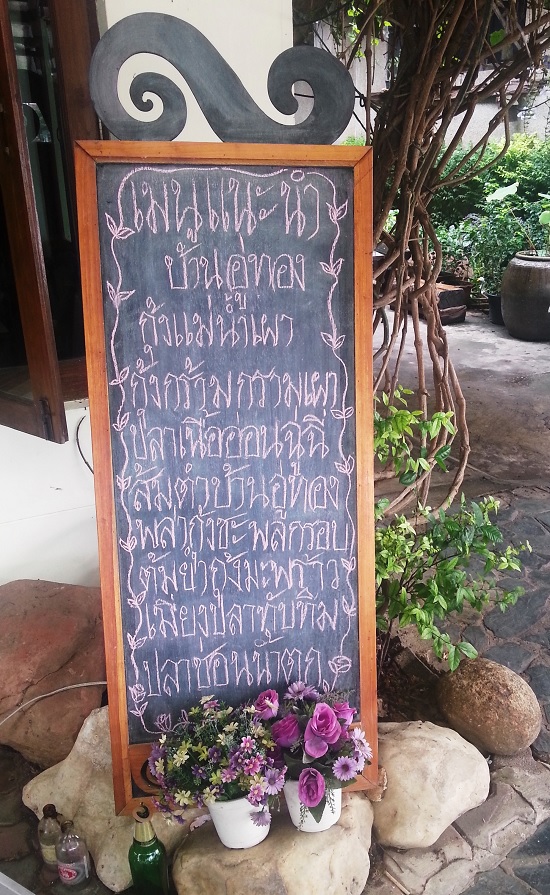 เมนูแนะนำ
บ้านอู่ทอง
กุ้งแม่น้ำเผา
กุ้งก้ามกรามเผา
ปลาเนื้ออ่อนฉู่ฉี่
ส้มตำบ้านอู่ทอง
พล่ากุ้งชะพลูกรอบ
ต้มยำกุ้งมะพร้าว
เมี่ยงปลาทับทิม
ปลาช่อนน้ำตก